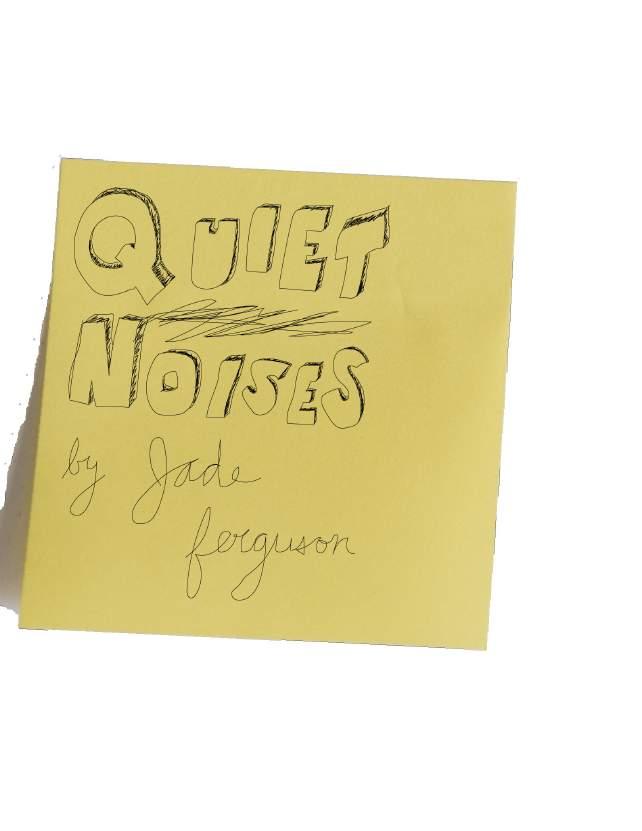 QUIET
NOISES
by Jade
ferguson